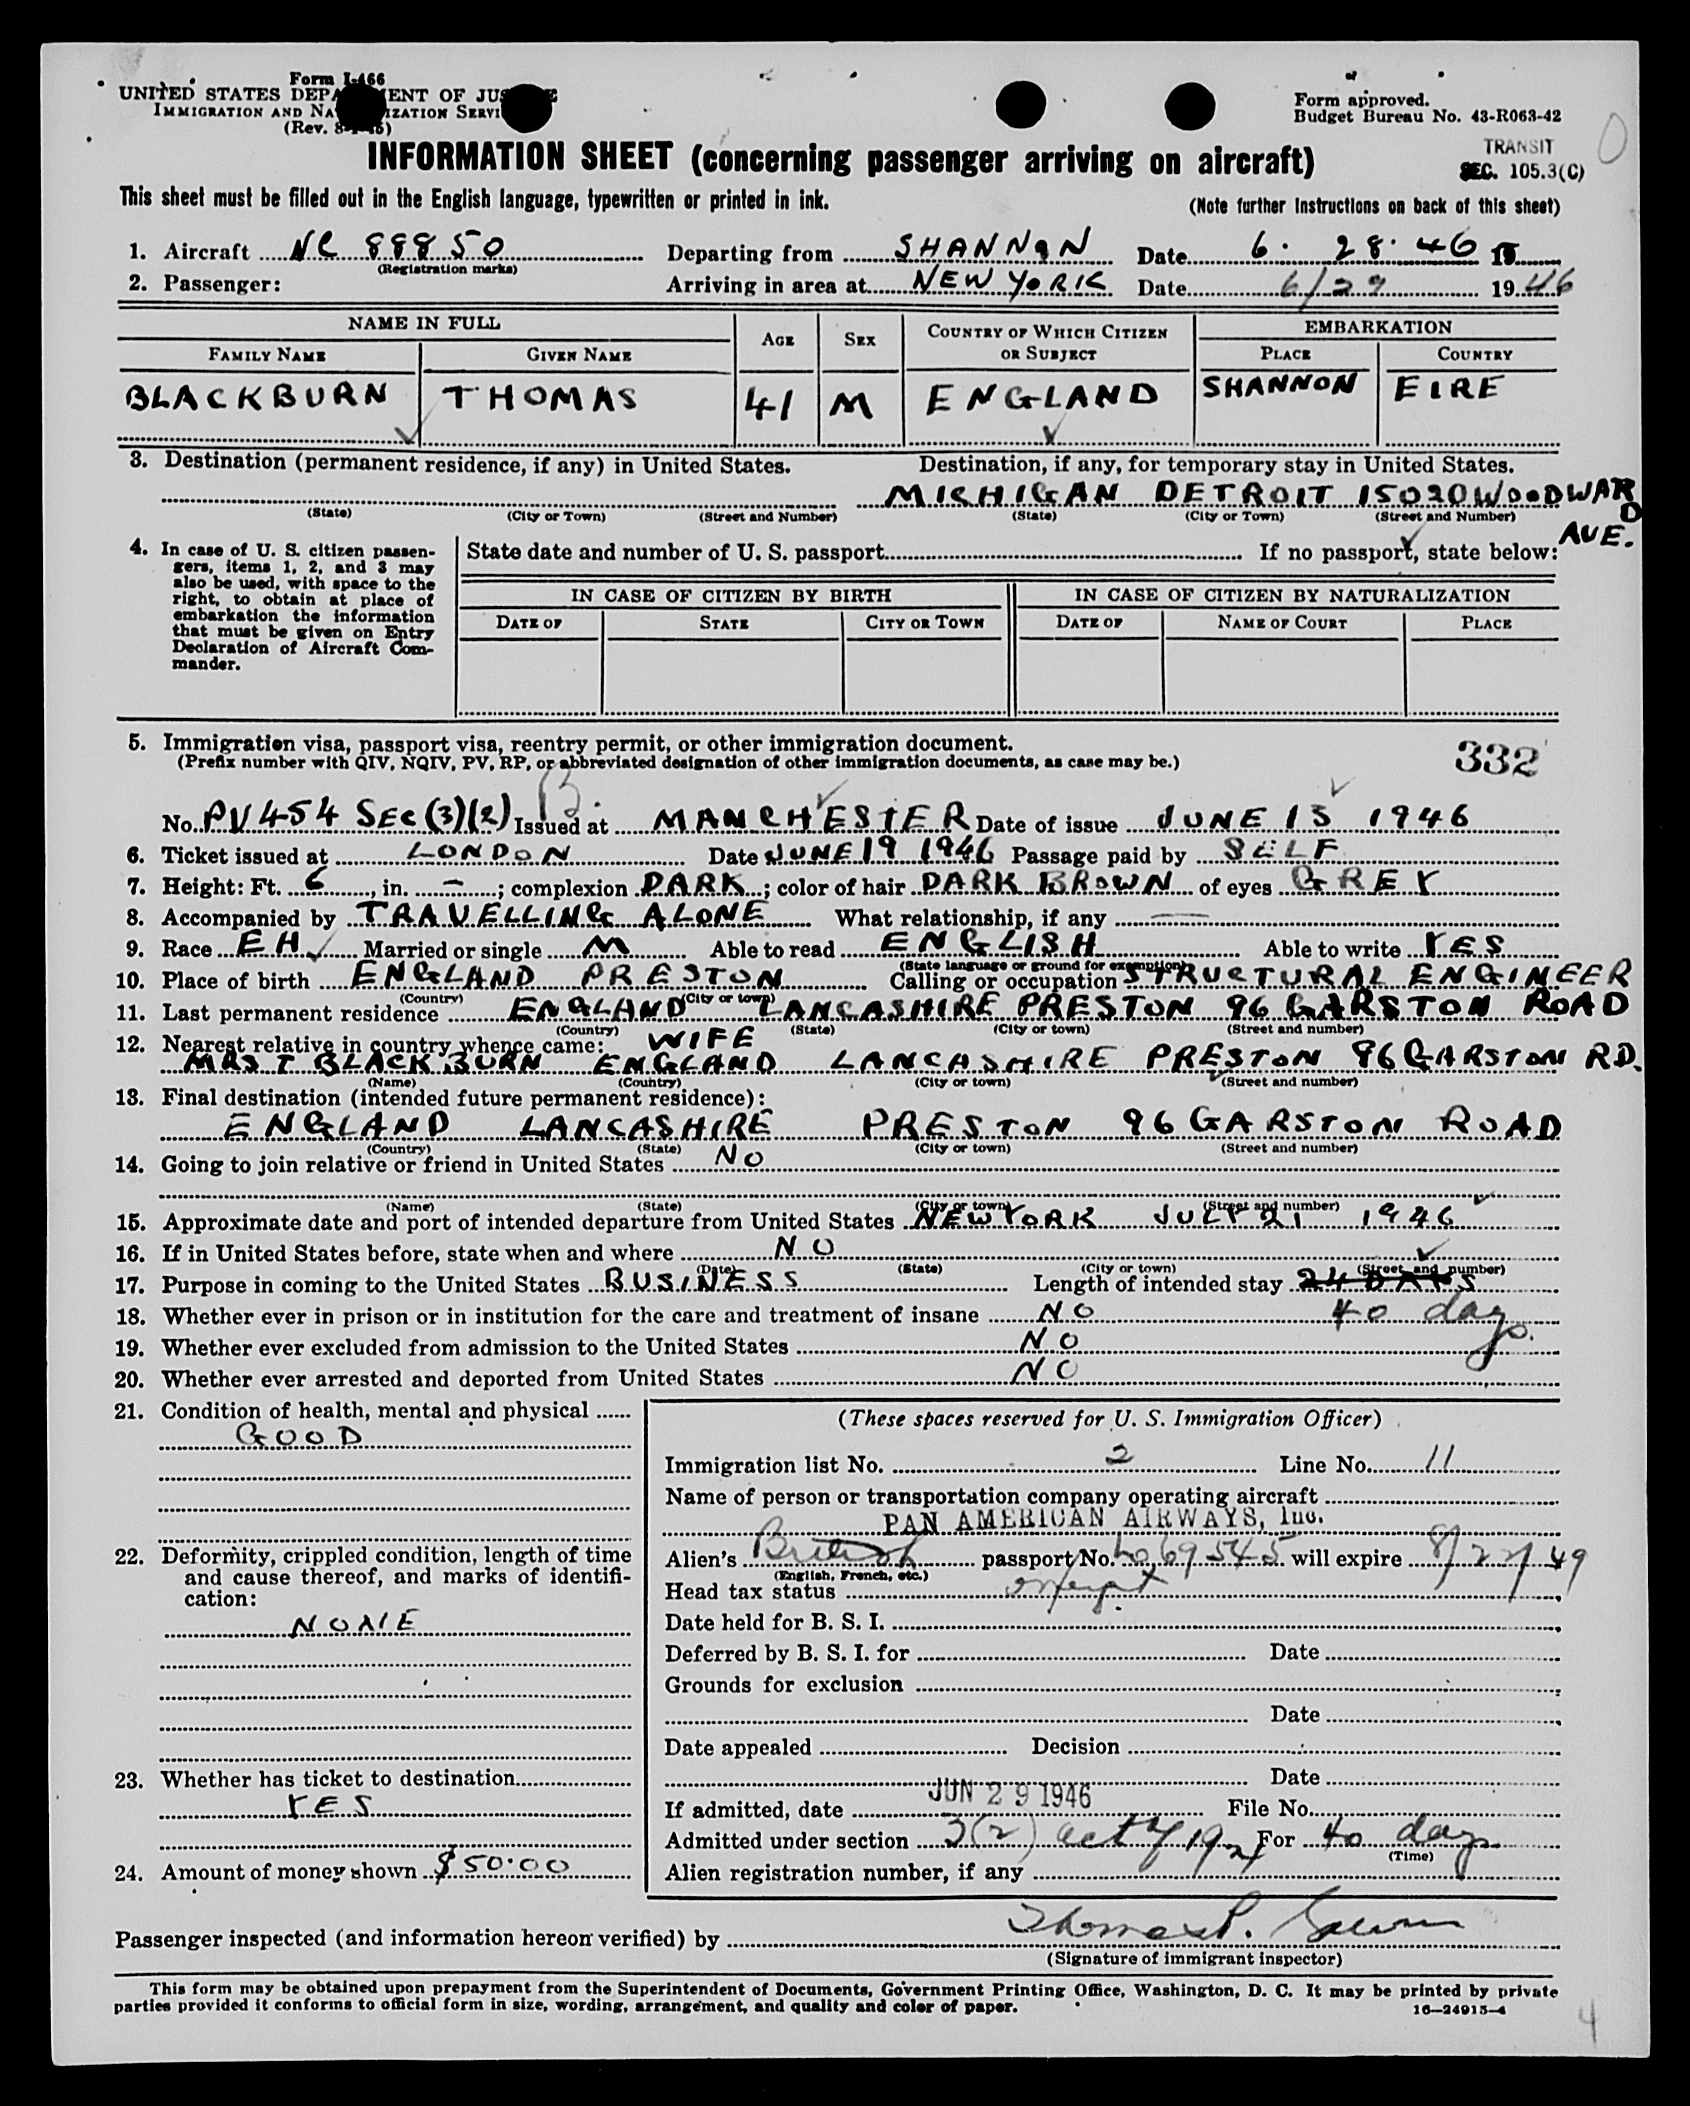 Form I-466
UNITED STATES DEPA ENT OF JUS E
IMMIGRATION AND NA IZATION SERVI
(Rev. 8-1-45)
Form approved.
Budget Bureau No. 43-R063-42
TRANSIT
SEC. 105.3(C)
INFORMATION SHEET (concerning passenger arriving on aircraft)
This sheet must be filled out in the English language, typewritten or printed in ink.
(Note further instructions on back of this sheet)
1. Aircraft NC 88850 Departing from SHANNON Date 6. 28. 46 19
(Registration marks)
2. Passenger: Arriving in area at NEW YORK Date 6/29 1946
NAME IN FULL AGE SEX COUNTRY OF WHICH CITIZEN OR SUBJECT EMBARKATION
FAMILY NAME GIVEN NAME PLACE COUNTRY
BLACKBURN THOMAS 41 M ENGLAND SHANNON EIRE
3. Destination (permanent residence, if any) in United States. Destination, if any, for temporary stay in United States.
MICHIGAN DETROIT 15020 WOODWARD AVE.
(State) (City or Town) (Street and Number) (State) (City or Town) (Street and Number)
4. In case of U. S. citizen passengers, items 1, 2, and 3 may also be used, with space to the right, to obtain at place of embarkation the information that must be given on Entry Declaration of Aircraft Commander.
State date and number of U. S. passport If no passport, state below:
IN CASE OF CITIZEN BY BIRTH IN CASE OF CITIZEN BY NATURALIZATION
DATE OF STATE CITY OR TOWN DATE OF NAME OF COURT PLACE
5. Immigration visa, passport visa, reentry permit, or other immigration document.
(Prefix number with QIV, NQIV, PV, RP, or abbreviated designation of other immigration documents, as case may be.)
332
No. PV 454 SEC (3)(2) B. Issued at MANCHESTER Date of issue JUNE 13 1946
6. Ticket issued at LONDON Date JUNE 19 1946 Passage paid by SELF
7. Height: Ft. 6, in. —; complexion DARK; color of hair DARK BROWN of eyes GREY
8. Accompanied by TRAVELLING ALONE What relationship, if any —
9. Race EH Married or single M Able to read ENGLISH Able to write YES
(State language or ground for exemption)
10. Place of birth ENGLAND PRESTON Calling or occupation STRUCTURAL ENGINEER
(Country) (City or town)
11. Last permanent residence ENGLAND LANCASHIRE PRESTON 96 GARSTON ROAD
(Country) (State) (City or town) (Street and number)
12. Nearest relative in country whence came: WIFE
MRS T BLACKBURN ENGLAND LANCASHIRE PRESTON 96 GARSTON RD.
(Name) (Country) (City or town) (Street and number)
13. Final destination (intended future permanent residence):
ENGLAND LANCASHIRE PRESTON 96 GARSTON ROAD
(Country) (State) (City or town) (Street and number)
14. Going to join relative or friend in United States NO
(Name) (State) (City or town) (Street and number)
15. Approximate date and port of intended departure from United States NEW YORK JULY 21 1946
16. If in United States before, state when and where NO
(Date) (State) (City or town) (Street and number)
17. Purpose in coming to the United States BUSINESS Length of intended stay 24 DAYS
40 days.
18. Whether ever in prison or in institution for the care and treatment of insane NO
19. Whether ever excluded from admission to the United States NO
20. Whether ever arrested and deported from United States NO
21. Condition of health, mental and physical
GOOD
22. Deformity, crippled condition, length of time and cause thereof, and marks of identification:
NONE
23. Whether has ticket to destination
YES
24. Amount of money shown $50.00
(These spaces reserved for U. S. Immigration Officer)
Immigration list No. 2 Line No. 11
Name of person or transportation company operating aircraft
PAN AMERICAN AIRWAYS, Inc.
Alien's British passport No. 69545 will expire 8/22/49
(English, French, etc.)
Head tax status exempt
Date held for B. S. I.
Deferred by B. S. I. for Date
Grounds for exclusion
Date
Date appealed Decision
Date
If admitted, date JUN 29 1946 File No.
Admitted under section 3(2) act of 1924 For 40 days
(Time)
Alien registration number, if any
Passenger inspected (and information hereon verified) by Thomas P.
(Signature of immigrant inspector)
This form may be obtained upon prepayment from the Superintendent of Documents, Government Printing Office, Washington, D. C. It may be printed by private
parties provided it conforms to official form in size, wording, arrangement, and quality and color of paper.
16—24915-4
4